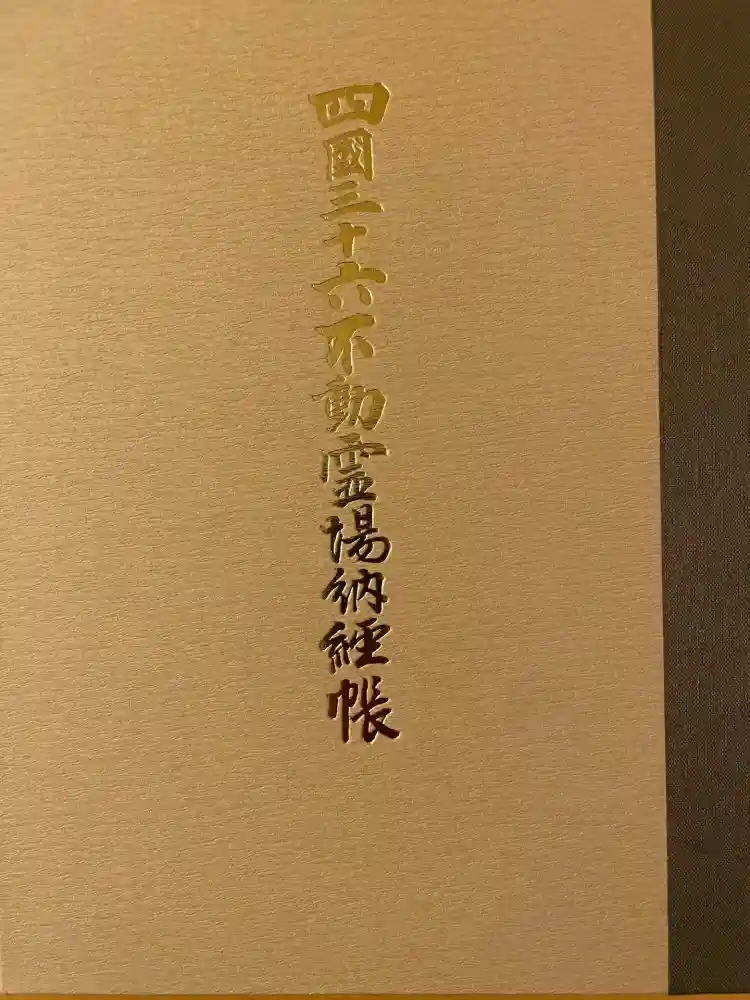 四國三十六不動霊場納経帳